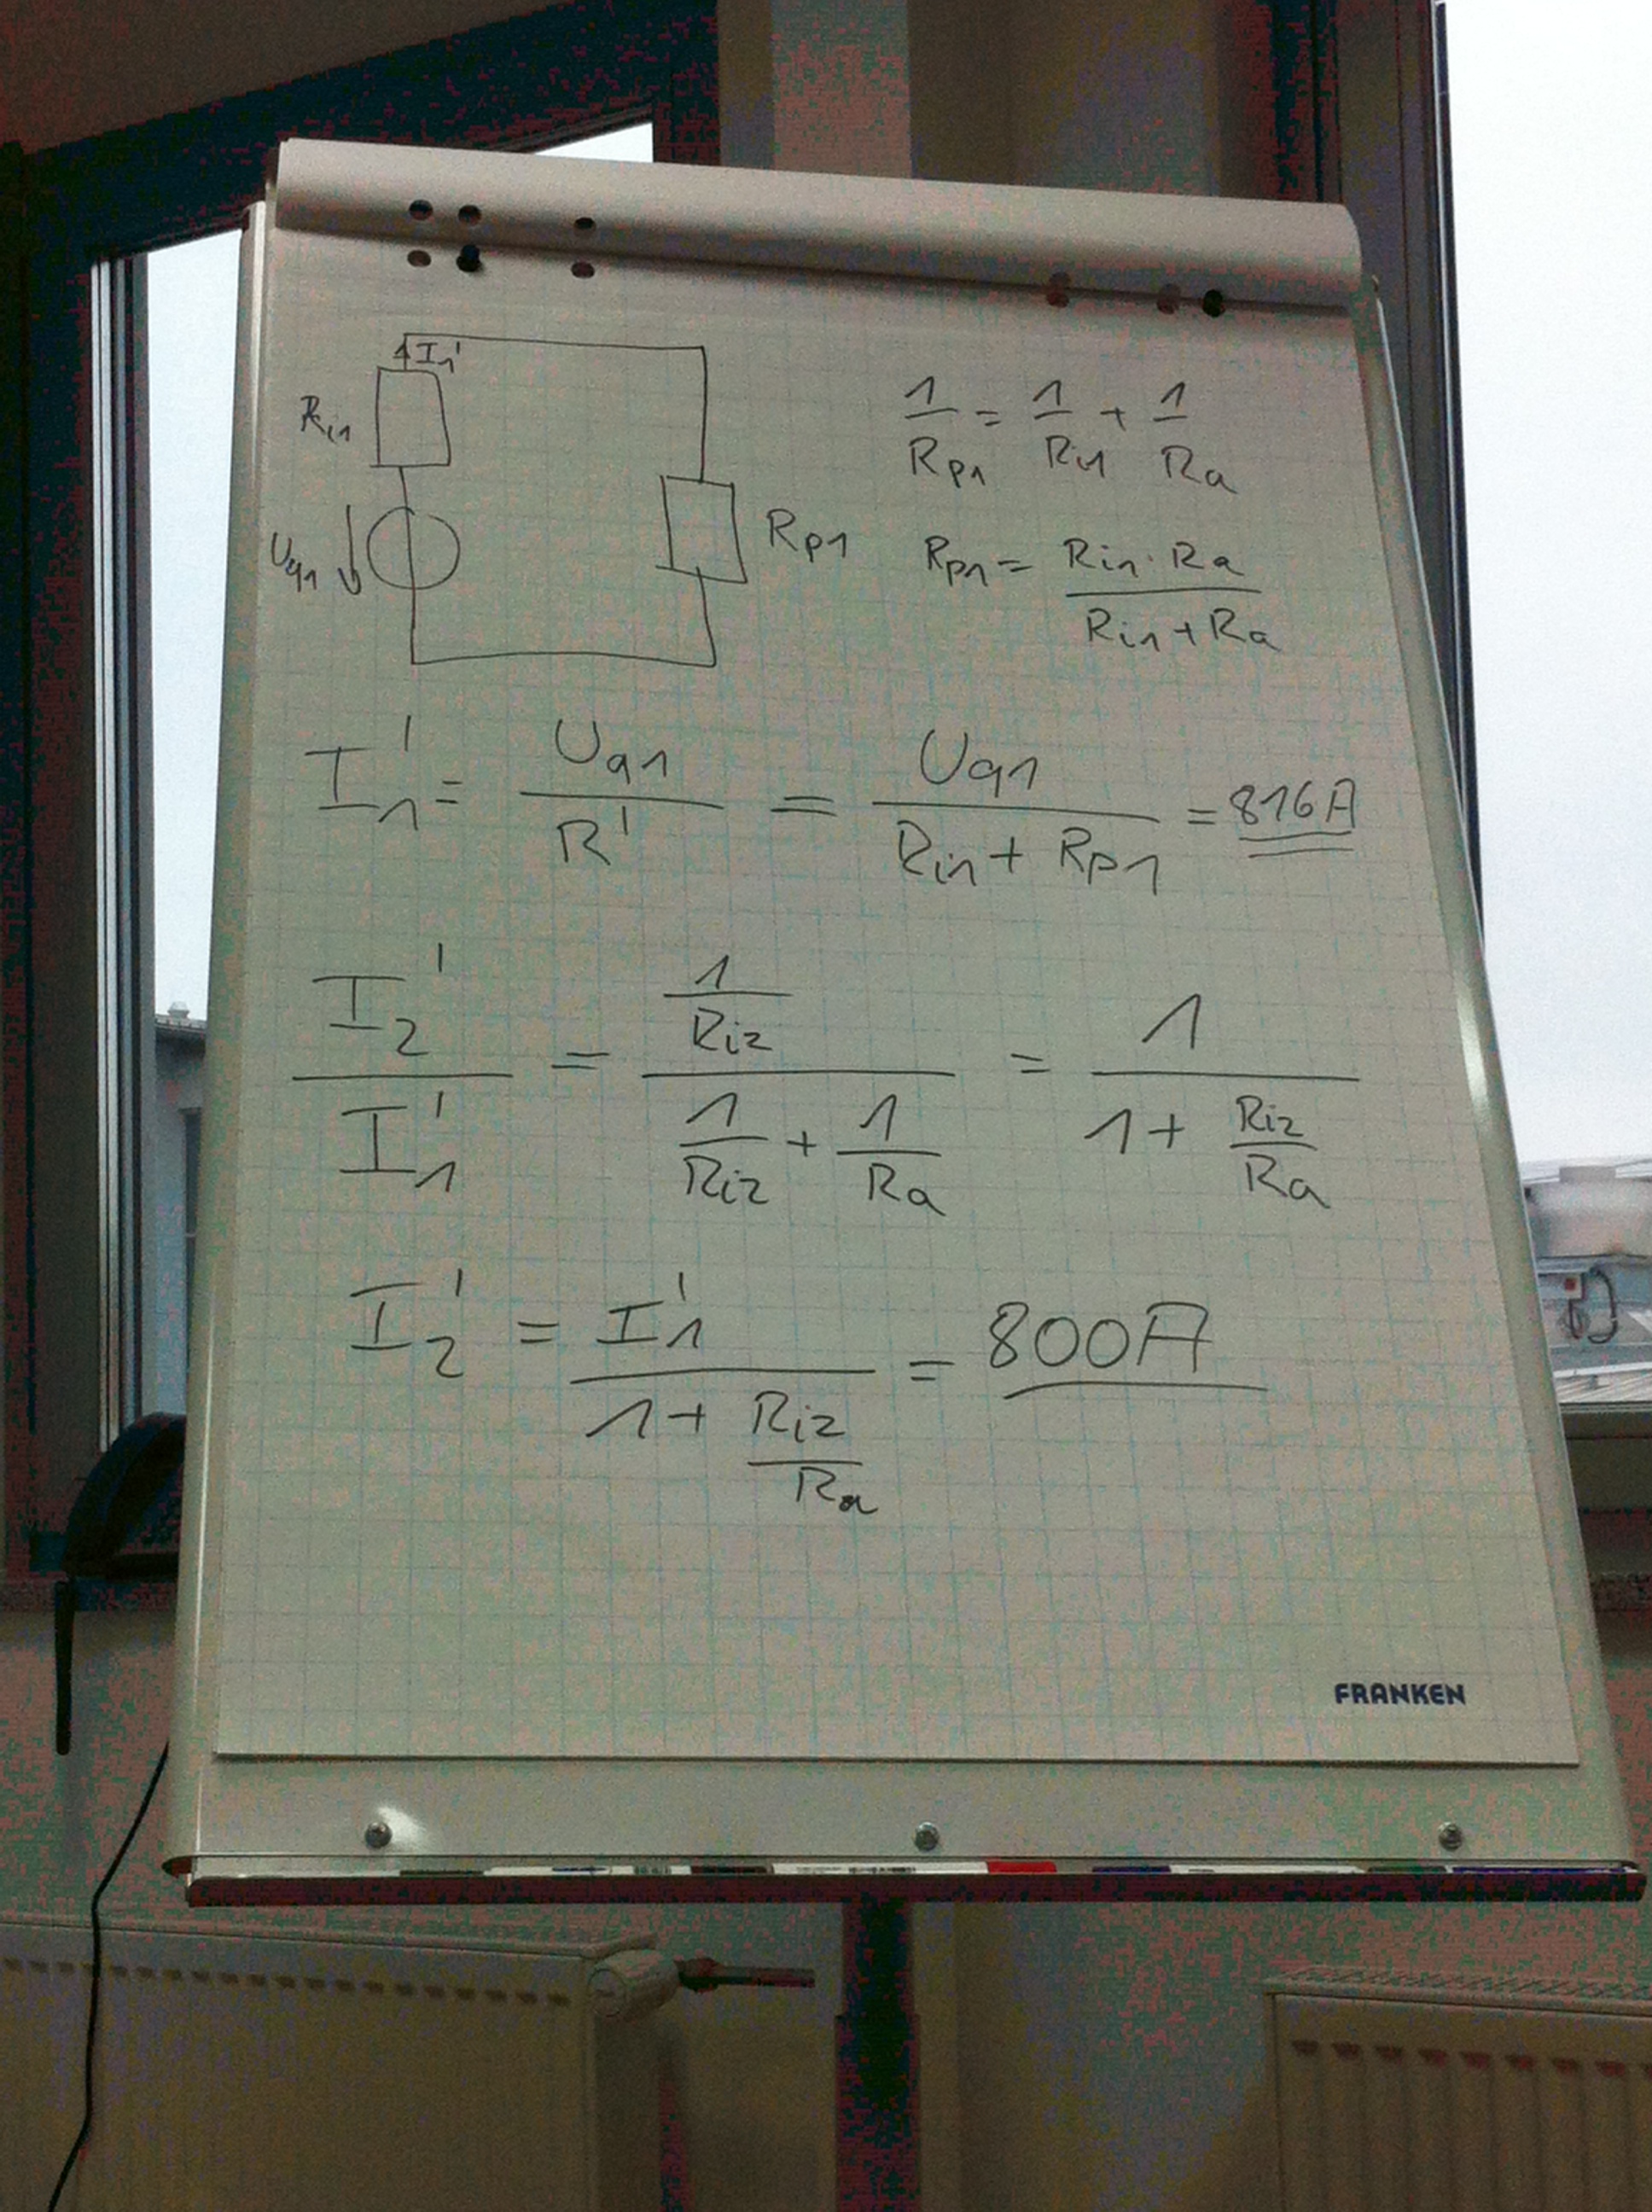 I₁'
Ri1
Uq1
Rp1
1/Rp1 = 1/Ri1 + 1/Ra
Rp1 = (Ri1 · Ra)/(Ri1 + Ra)
I₁' = Uq1/R' = Uq1/(Ri1 + Rp1) = 816A
I₂'/I₁' = (1/Ri2)/(1/Ri2 + 1/Ra) = 1/(1 + Ri2/Ra)
I₂' = I₁'/(1 + Ri2/Ra) = 800A
FRANKEN